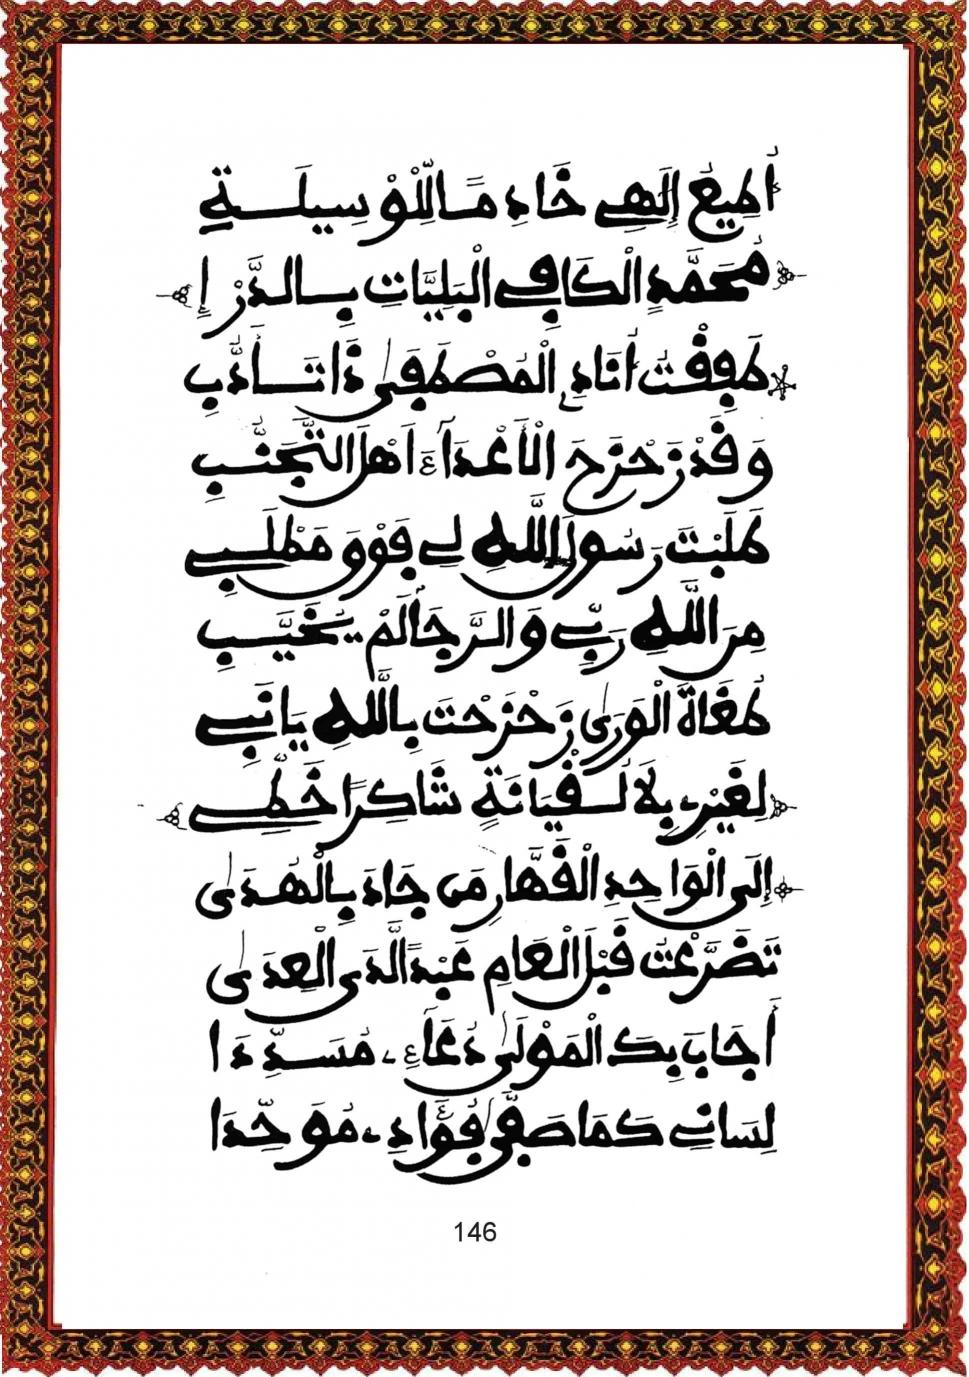 أُطِيعُ إِلَهِي خَادِمًا لِلْوَسِيلَةِ
مُحَمَّدٍ الْكَافِي الْبَلِيَّاتِ بِالدَّرْإِ
طَفِقْتُ أُنَادِي الْمُصْطَفَى ذَا تَأَدُّبِ
وَقَدْ زَحْزَحَ الْأَعْدَآءَ أَهْلَ التَّجَنُّبِ
طَلَبْتَ رَسُولَ اللَّهِ لِي فَوْقَ مَطْلَبِي
مِنَ اللَّهِ رَبِّي وَالرَّجَا لَمْ يُخَيَّبِ
طُغَاةَ الْوَرَى زَحْزَحْتَ بِاللَّهِ يَا نَبِي
لِغَيْرِي بِلَا لُقْيَانَةٍ شَاكِرًا خَطِّي
إِلَى الْوَاحِدِ الْقَهَّارِ مَن جَادَ بِالْهُدَى
تَضَرَّعْتُ قَبْلَ الْعَامِ عَبْدًا لَدَى الْعِدَى
أَجَابَ بِكَ الْمَوْلَى دُعَآءِي مُسَدِّدَا
لِسَانِي كَمَا صَفَّى فُؤَادِي مُوَحِّدَا
146